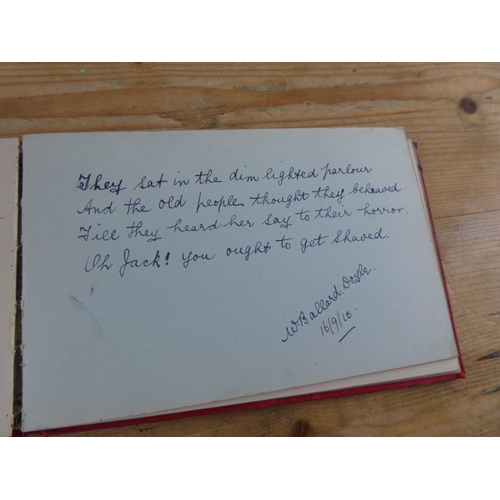 They sat in the dim lighted parlour
And the old people thought they behaved
Till they heard her say to their horror.
Oh Jack! you ought to get shaved.
W Ballard. Doyle.
16/9/10.